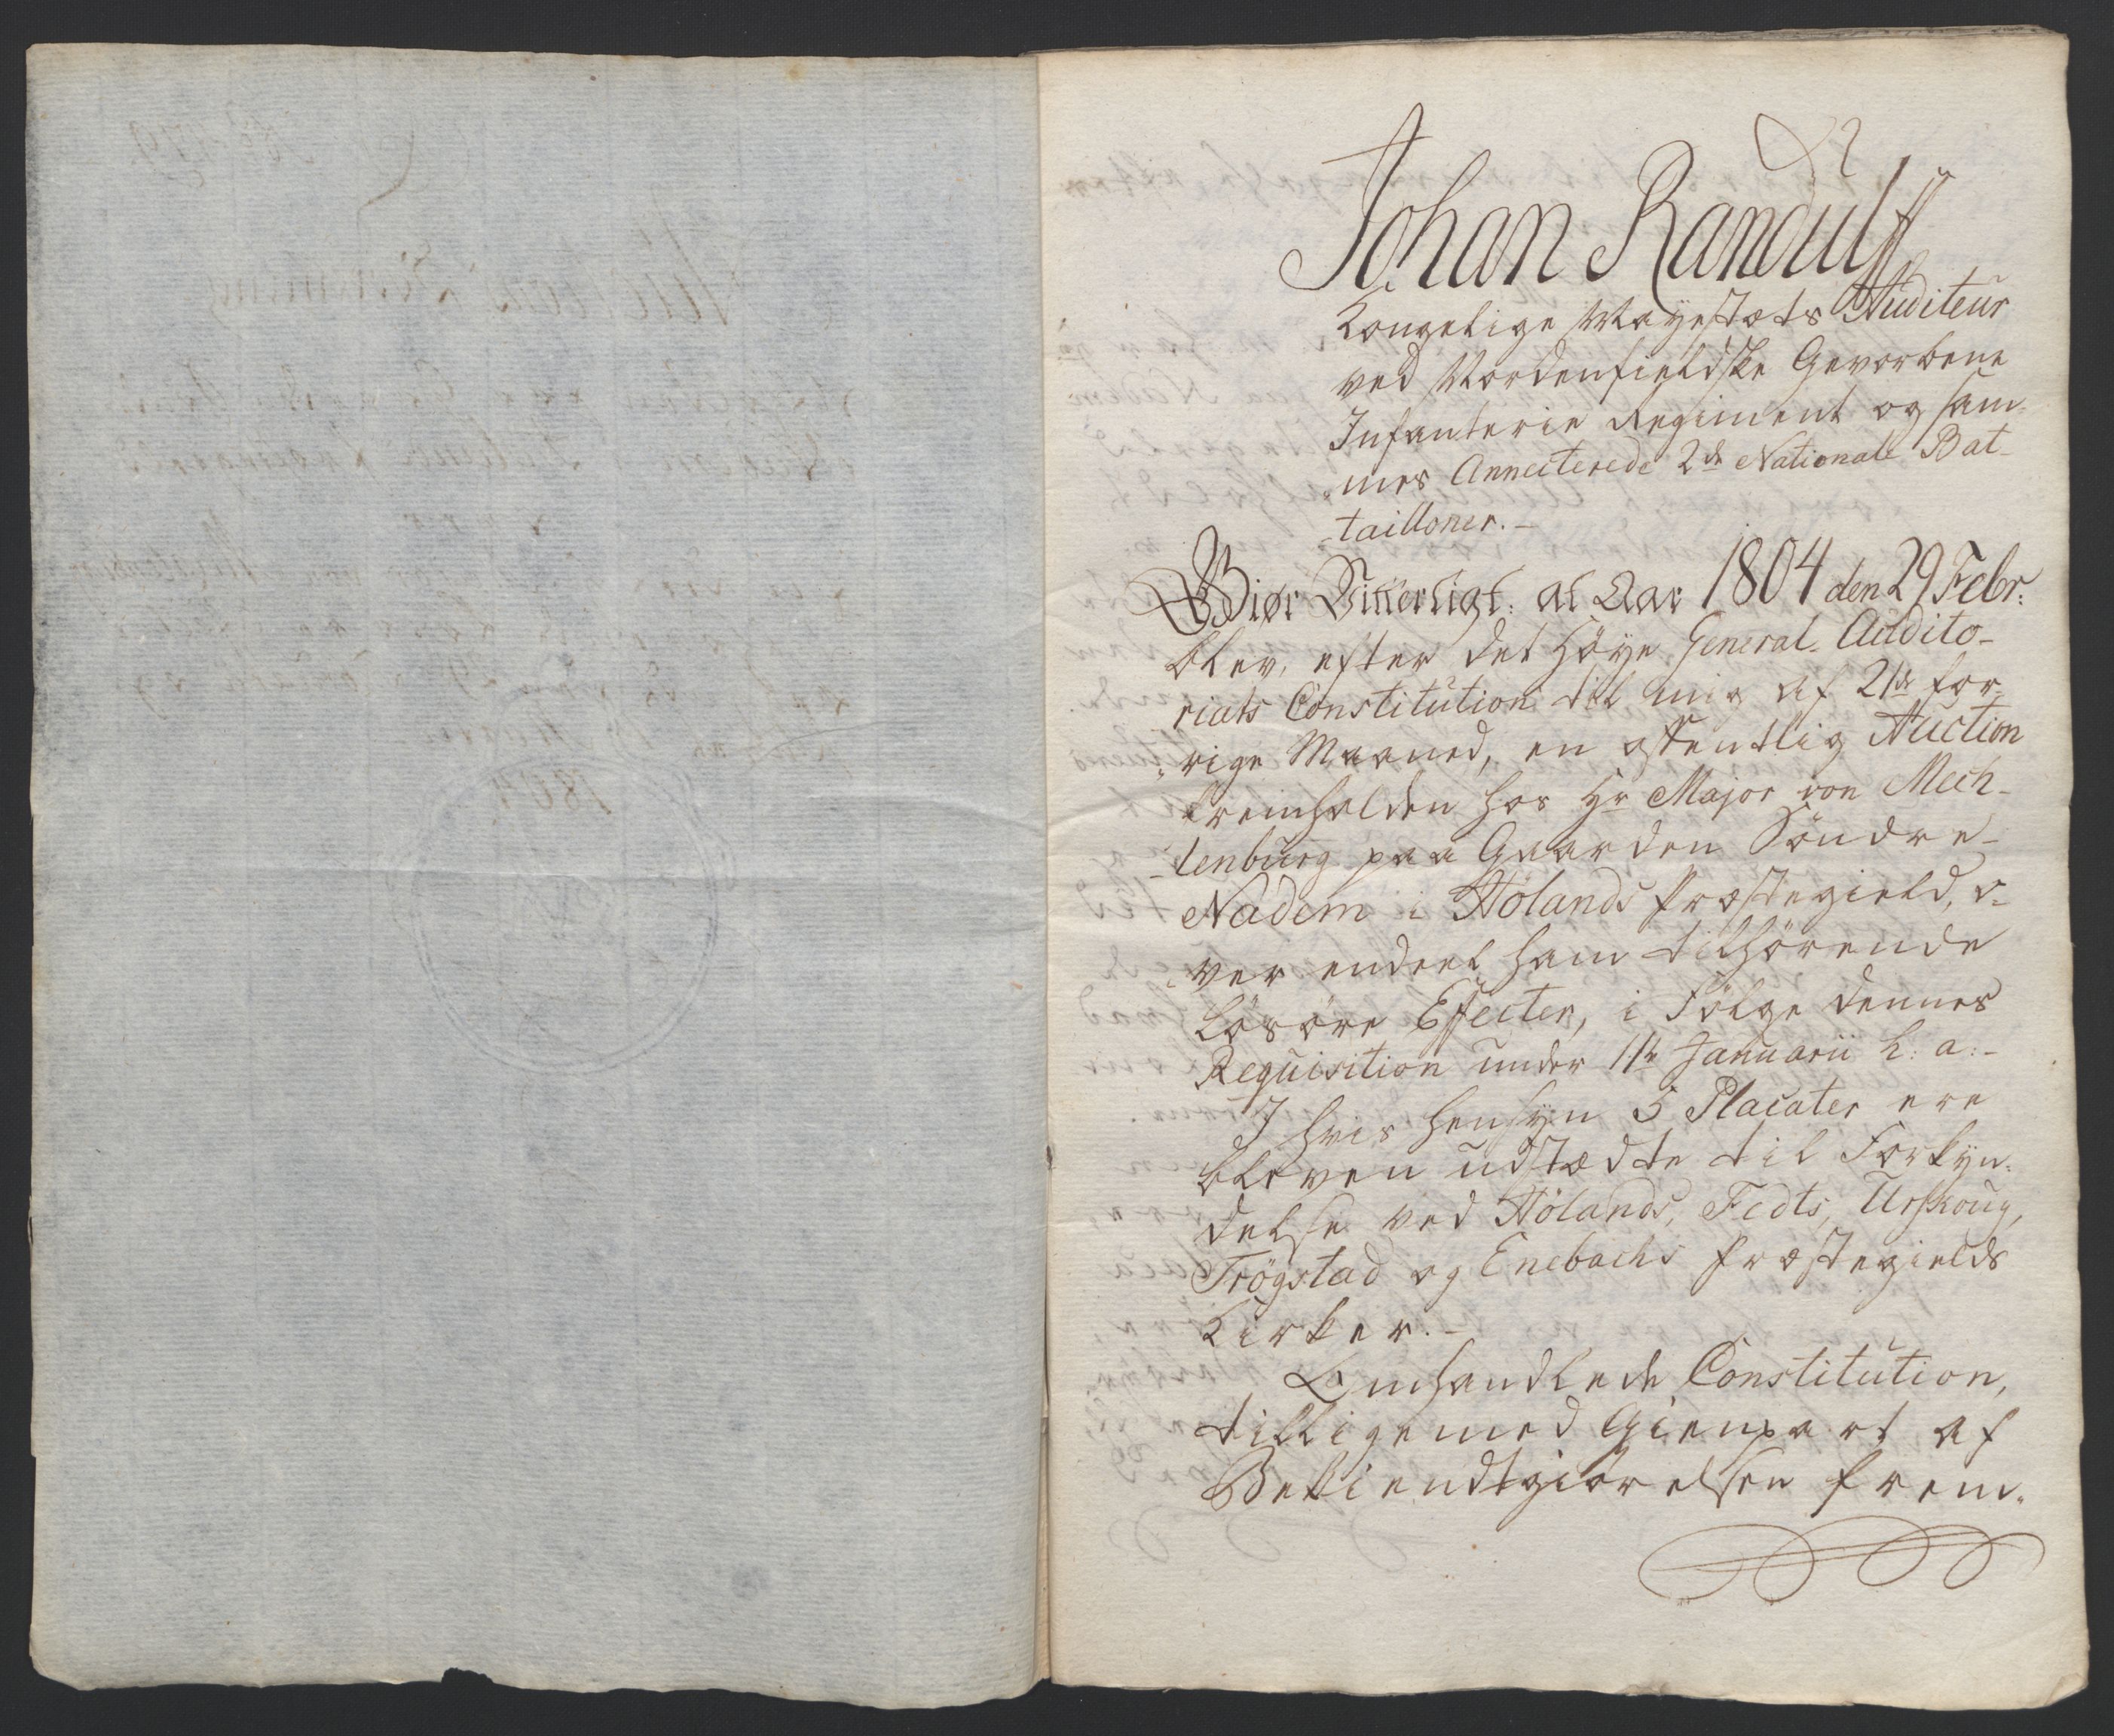 Johan Randulff
Kongelige Mayestæts Auditeur
ved Nordenfieldske Gevorbene
Infanterie Regiment og sam-
mes Annecterede 2de Nationale Bat-
tailloner.-
Giør Vitterligt: at Aar 1804 den 29 Febr:
blev, efter det Høye General-Audito-
riats Constitution til mig af 21de for-
rige Maaned, en offentlig Auction
fremholden hos Hr Major von Mech-
lenburg paa Gaarden Söndre-
Nadim i Hølands Præstegield, o-
ver endeel ham tilhørende
Løsøre Effecter, i Følge dennes
Requisition under 11te Januarii h: a:-
I hvis Hensyn 5 Placater ere
bleven udstædte til Forkyn-
delse ved Hølands, Fedts, Urskoug,
Trögstad og Enebachs Præstegields
Kirker.-
Omhandlede Constitution,
tilligemed Gienpart af
Bekiendtgiørelsen frem-